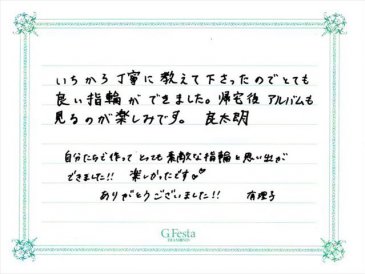 いちから丁寧に教えて下さったのでとても
良い指輪ができました。帰宅後アルバムも
見るのが楽しみです。 良太朗
自分たちで作って とっても素敵な指輪と思い出が
できました!! 楽しかったです♡
ありがとうございました!! 有理子
G.Festa
DIAMOND